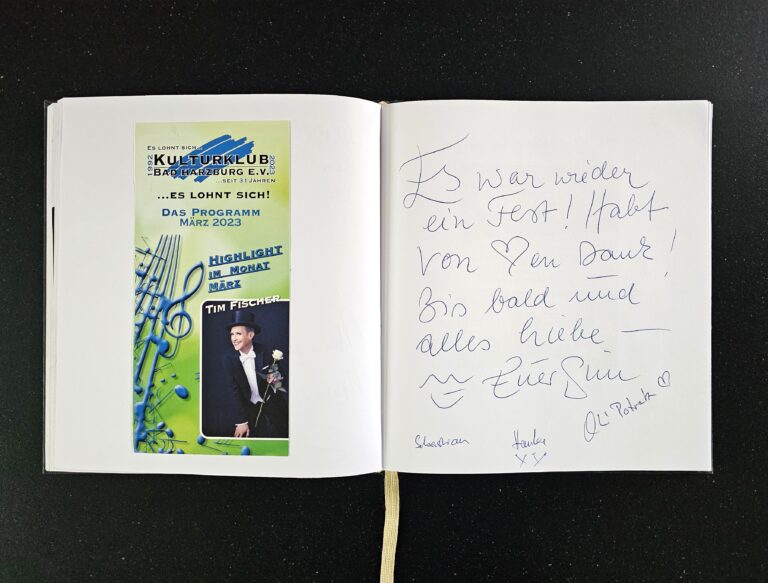 ES LOHNT SICH...
1992 KULTURKLUB 2023
BAD HARZBURG E.V.
...SEIT 31 JAHREN
...ES LOHNT SICH!
DAS PROGRAMM
MÄRZ 2023
HIGHLIGHT
IM MONAT
MÄRZ
TIM FISCHER
Es war wieder
ein Fest! Habt
von ♡en Dank!
Bis bald und
alles Liebe —
Euer
Oli Potratz ♡
Sebastian